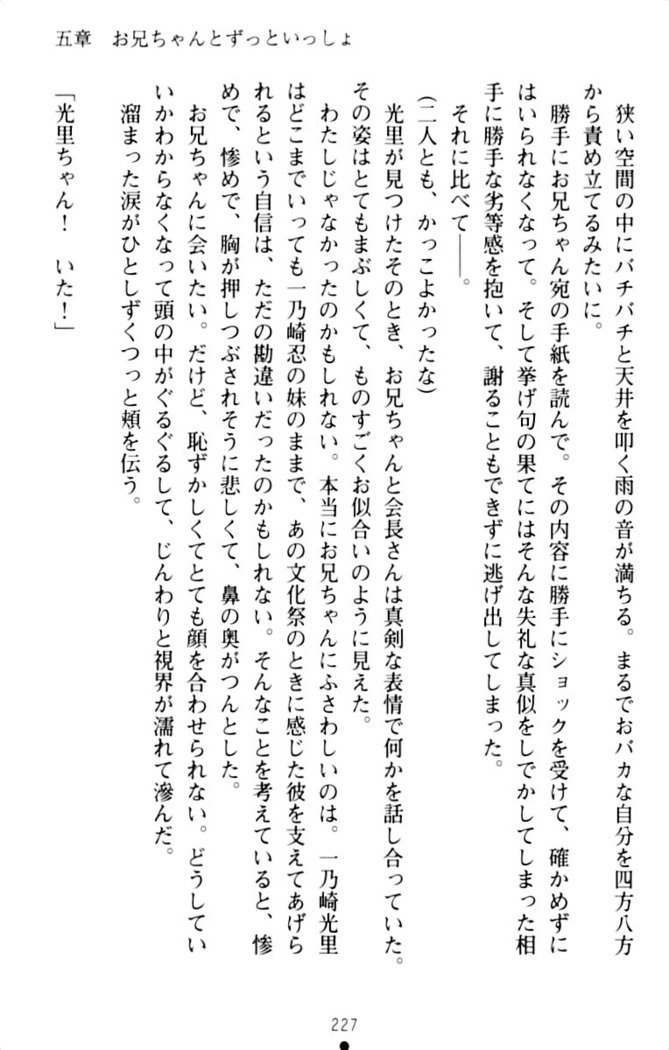 五章　お兄ちゃんとずっといっしょ
　狭い空間の中にバチバチと天井を叩く雨の音が満ちる。まるでおバカな自分を四方八方
から責め立てるみたいに。
　勝手にお兄ちゃん宛の手紙を読んで。その内容に勝手にショックを受けて、確かめずに
はいられなくなって。そして挙げ句の果てにはそんな失礼な真似をしでかしてしまった相
手に勝手な劣等感を抱いて、謝ることもできずに逃げ出してしまった。
　それに比べて――。
（二人とも、かっこよかったな）
　光里が見つけたそのとき、お兄ちゃんと会長さんは真剣な表情で何かを話し合っていた。
その姿はとてもまぶしくて、ものすごくお似合いのように見えた。
　わたしじゃなかったのかもしれない。本当にお兄ちゃんにふさわしいのは。一乃崎光里
はどこまでいっても一乃崎忍の妹のままで、あの文化祭のときに感じた彼を支えてあげら
れるという自信は、ただの勘違いだったのかもしれない。そんなことを考えていると、惨
めで、惨めで、胸が押しつぶされそうに悲しくて、鼻の奥がつんとした。
　お兄ちゃんに会いたい。だけど、恥ずかしくてとても顔を合わせられない。どうしてい
いかわからなくなって頭の中がぐるぐるして、じんわりと視界が濡れて滲んだ。
　溜まった涙がひとしずくつっと頬を伝う。
「光里ちゃん！　いた！」
227